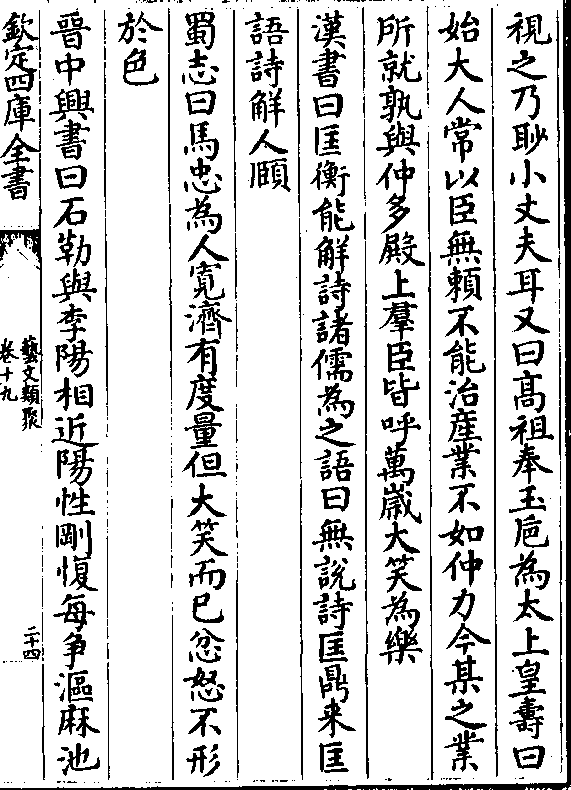 視之乃眇小丈夫耳又曰髙祖奉玉巵為太上皇壽曰
始大人常以臣無賴不能治産業不如仲力今某之業
所就孰與仲多殿上羣臣皆呼萬歳大笑為樂
漢書曰匡衡能解詩諸儒為之語曰無說詩匡鼎来匡
語詩解人頤
蜀志曰馬忠為人寛濟有度量但大笑而已忿怒不形
於色
晉中興書曰石勒與李陽相近陽性剛愎每争漚麻池
欽定四庫全書
藝文類聚
卷十九
二十四